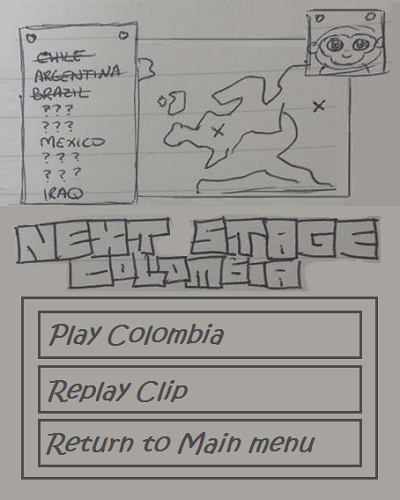 CHILE
ARGENTINA
BRAZIL
???
???
MEXICO
???
???
IRAQ
NEXT STAGE
COLOMBIA
Play Colombia
Replay Clip
Return to Main menu